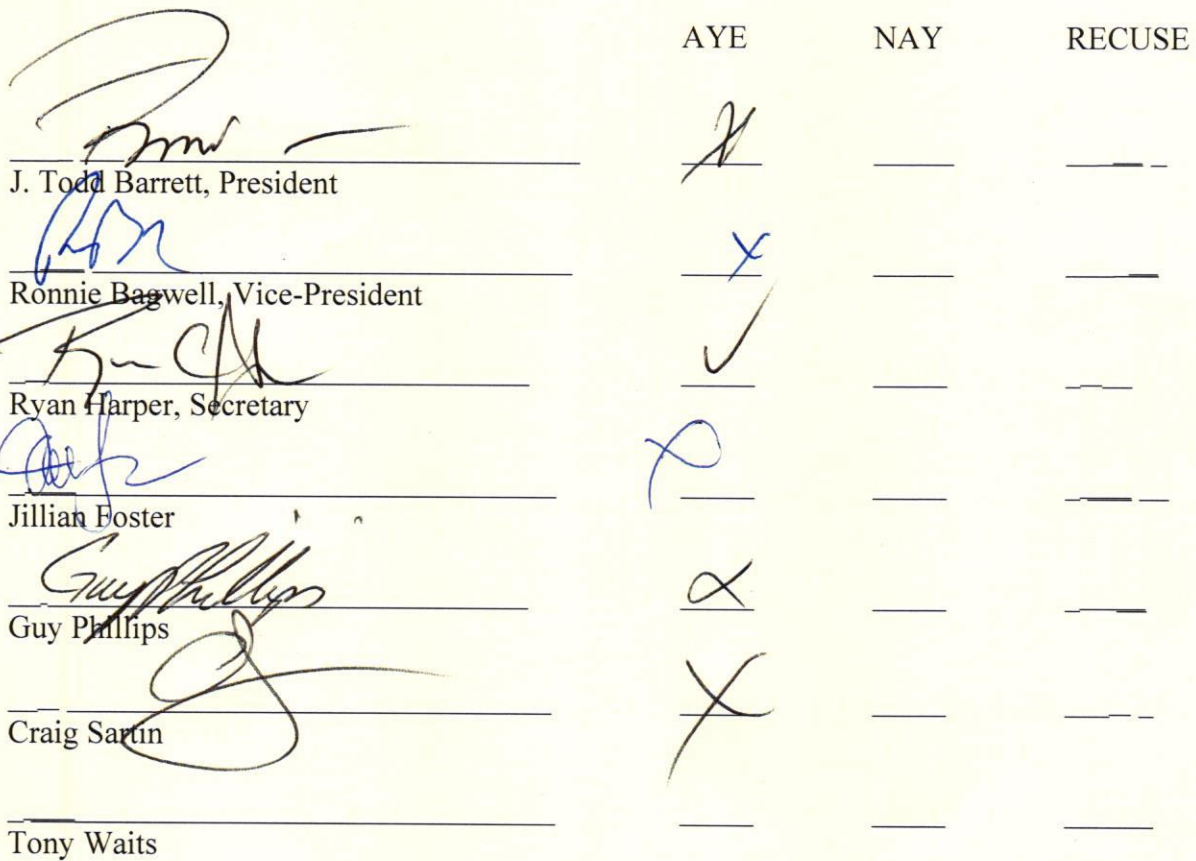 AYE NAY RECUSE
J. Todd Barrett, President
Ronnie Bagwell, Vice-President
X
Ryan Harper, Secretary
✓
Jillian Foster
X
Guy Phillips
Guy Phillips
X
Craig Sartin
X
Tony Waits